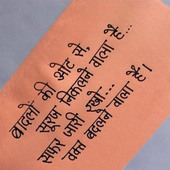 बादलों की ओट से,
सूरज निकलने वाला है...
सफर जारी रखो...
वक्त बदलने वाला है।